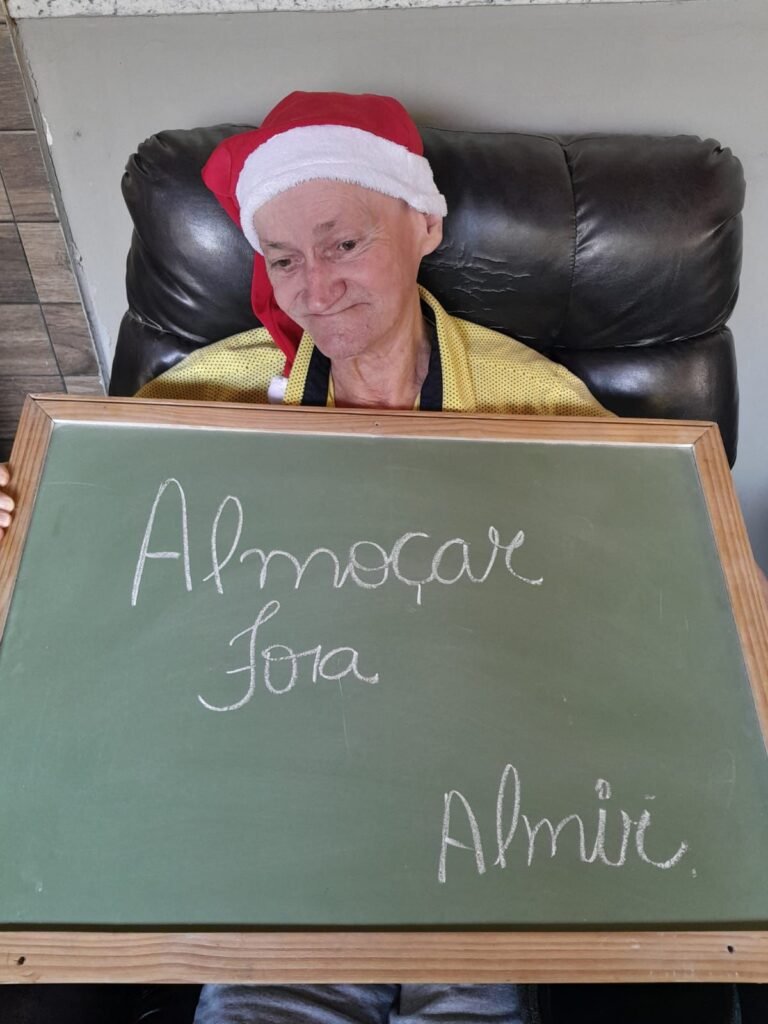 Almoçar
Fora
Almir